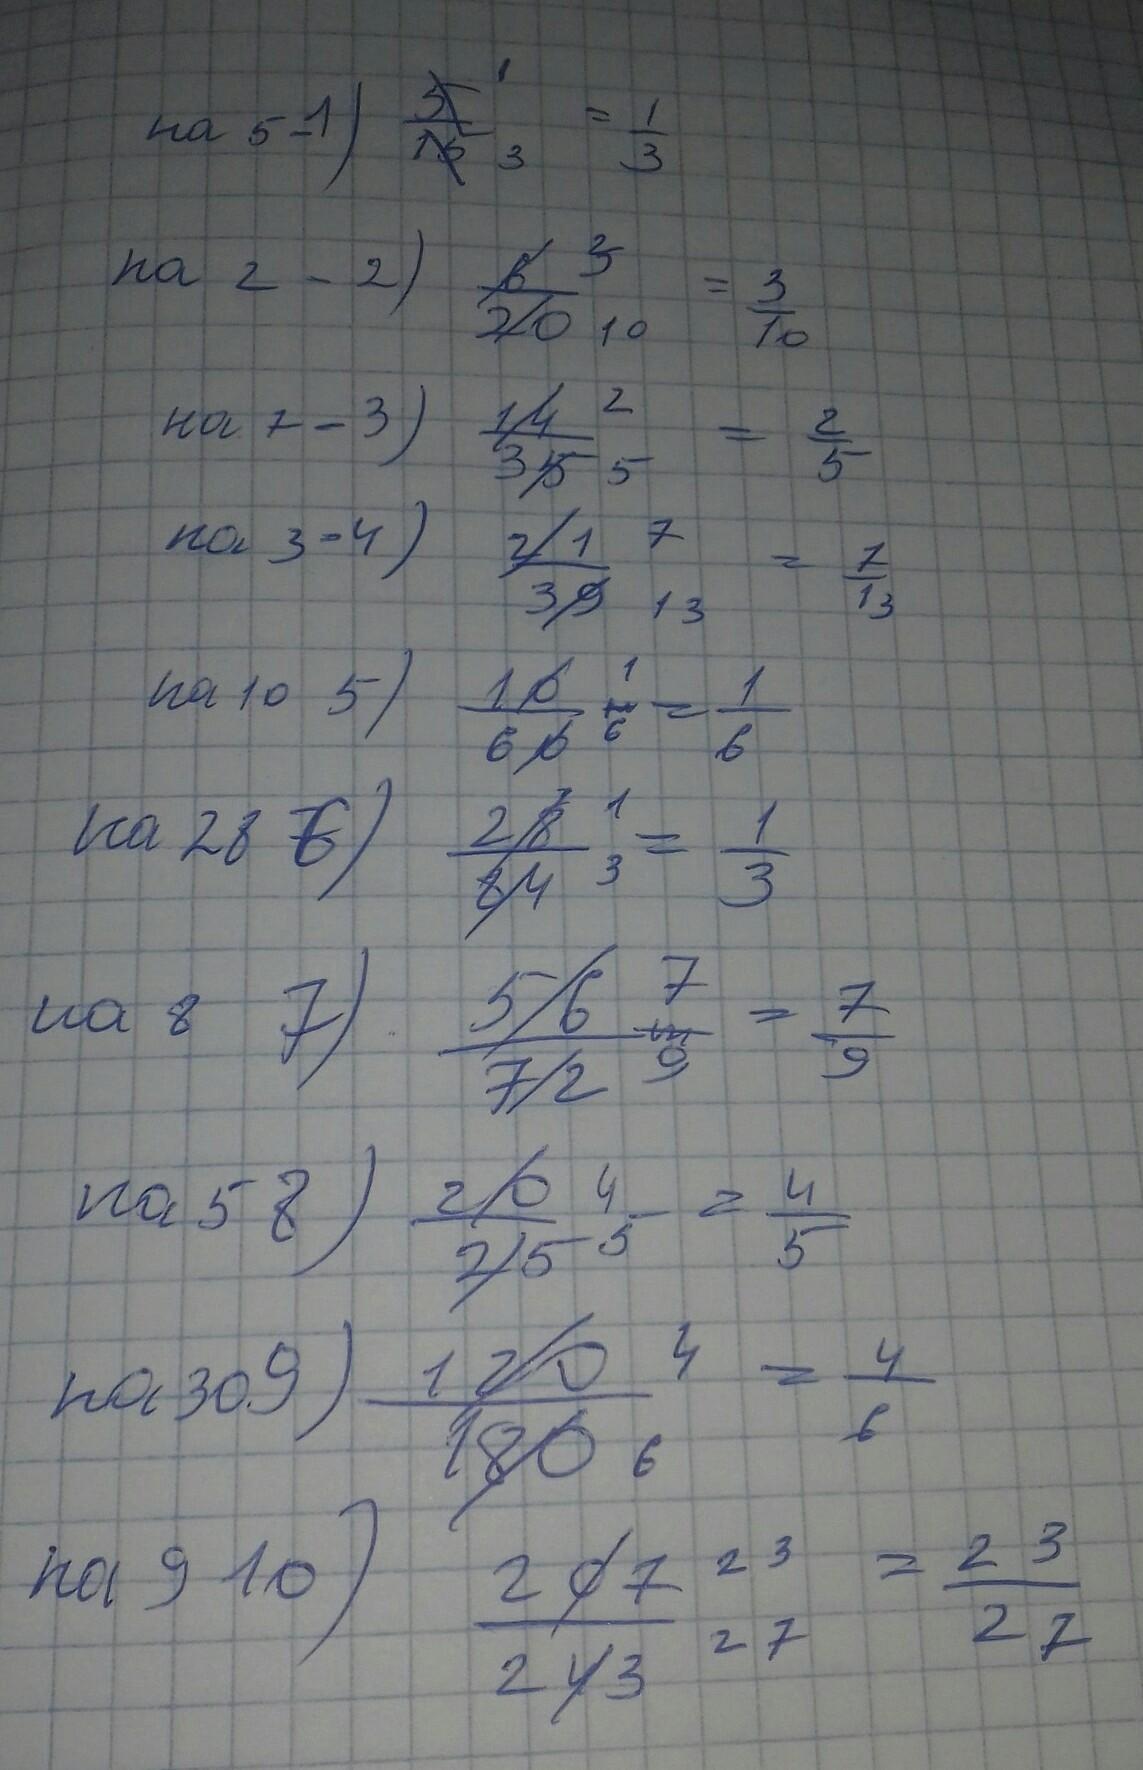 на 5-1) 5/15 1/3 = 1/3
на 2-2) 6/20 3/10 = 3/10
на 7-3) 14/35 2/5 = 2/5
на 3-4) 21/39 7/13 = 7/13
на 10 5) 10/60 1/6 = 1/6
на 28 6) 28/84 1/3 = 1/3
на 8 7) 56/72 7/9 = 7/9
на 5 8) 20/25 4/5 = 4/5
на 30 9) 120/180 4/6 = 4/6
на 9 10) 207/243 23/27 = 23/27